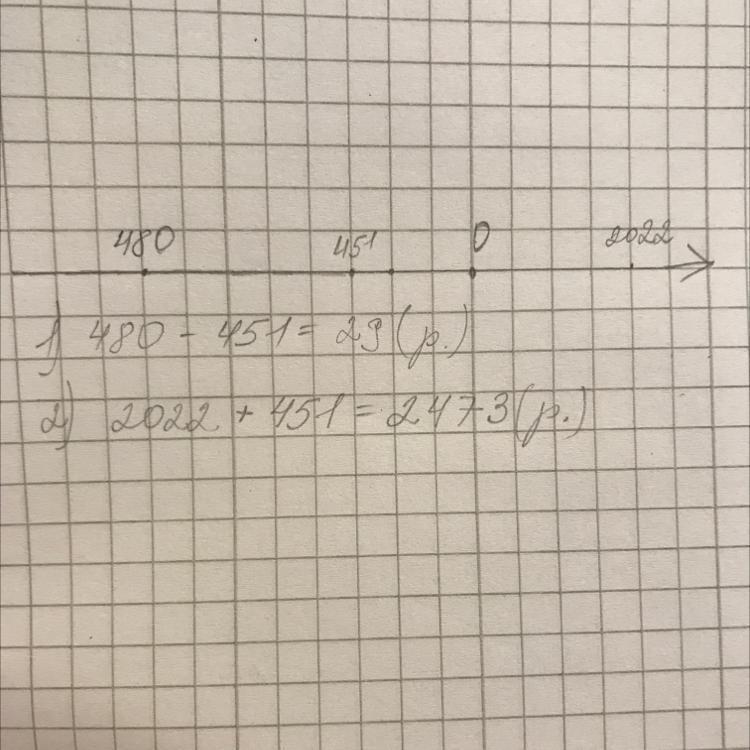 480 451 0 2022
1) 480 - 451 = 29 (р.)
2) 2022 + 451 = 2473 (р.)